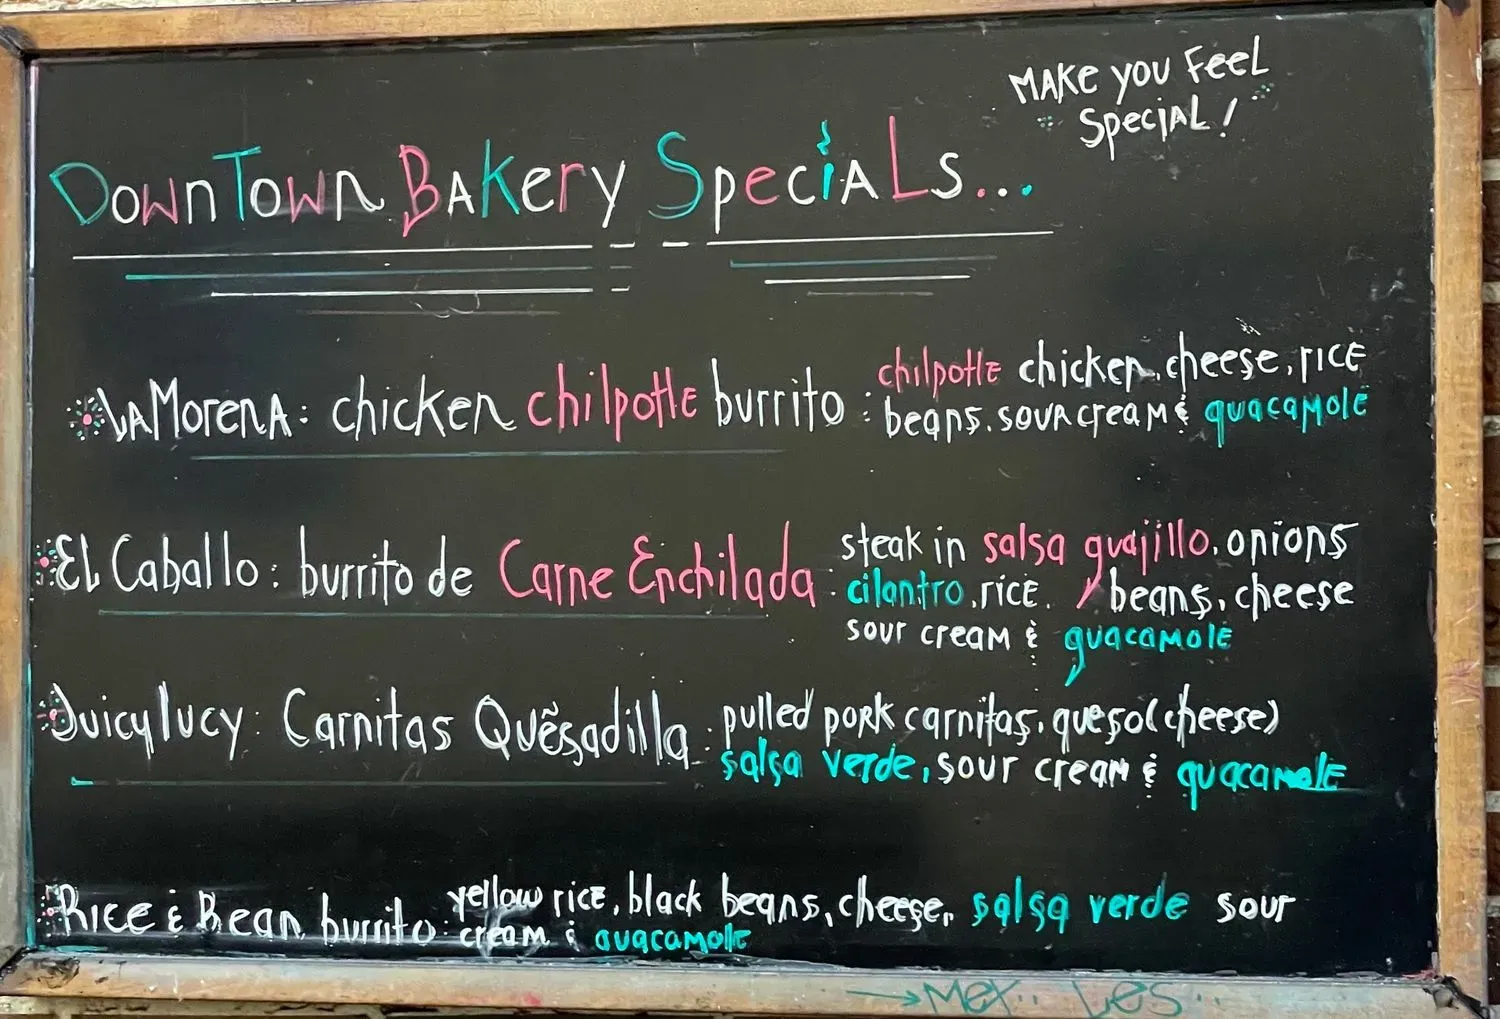 MAKE YOU FEEL
SPECIAL!
DOWNTOWN BAKERY SPECIALS...
LA MORENA: chicken chilpotle burrito : chilpotle chicken, cheese, rice
beans, sour cream & guacamole
EL Caballo: burrito de Carne Enchilada : steak in salsa guajillo, onions
cilantro, rice, beans, cheese
sour cream & guacamole
Juicy lucy: Carnitas Quesadilla : pulled pork carnitas, queso (cheese)
salsa verde, sour cream & guacamole
Rice & Bean burrito : yellow rice, black beans, cheese, salsa verde sour
cream & guacamole
→ MEX.. LES..